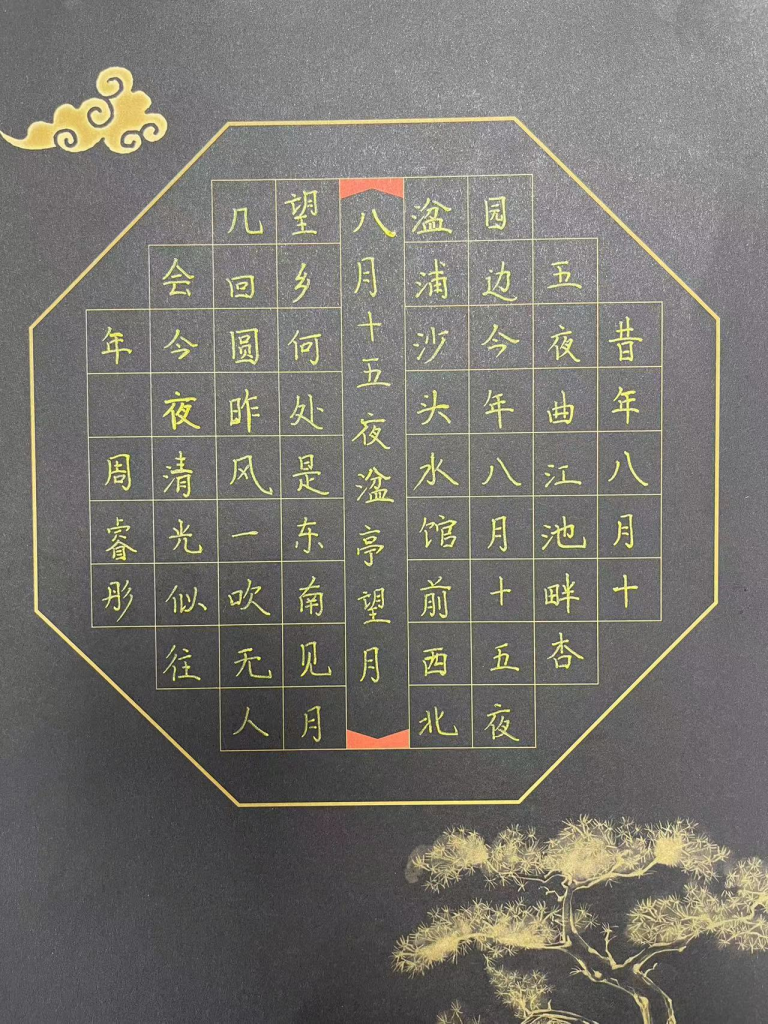 昔年八月十
五夜曲江池畔杏
园边今年八月十五夜
湓浦沙头水馆前西北
八月十五夜湓亭望月
望乡何处是东南见月
几回圆昨风一吹无人
会今夜清光似往
年 周睿彤